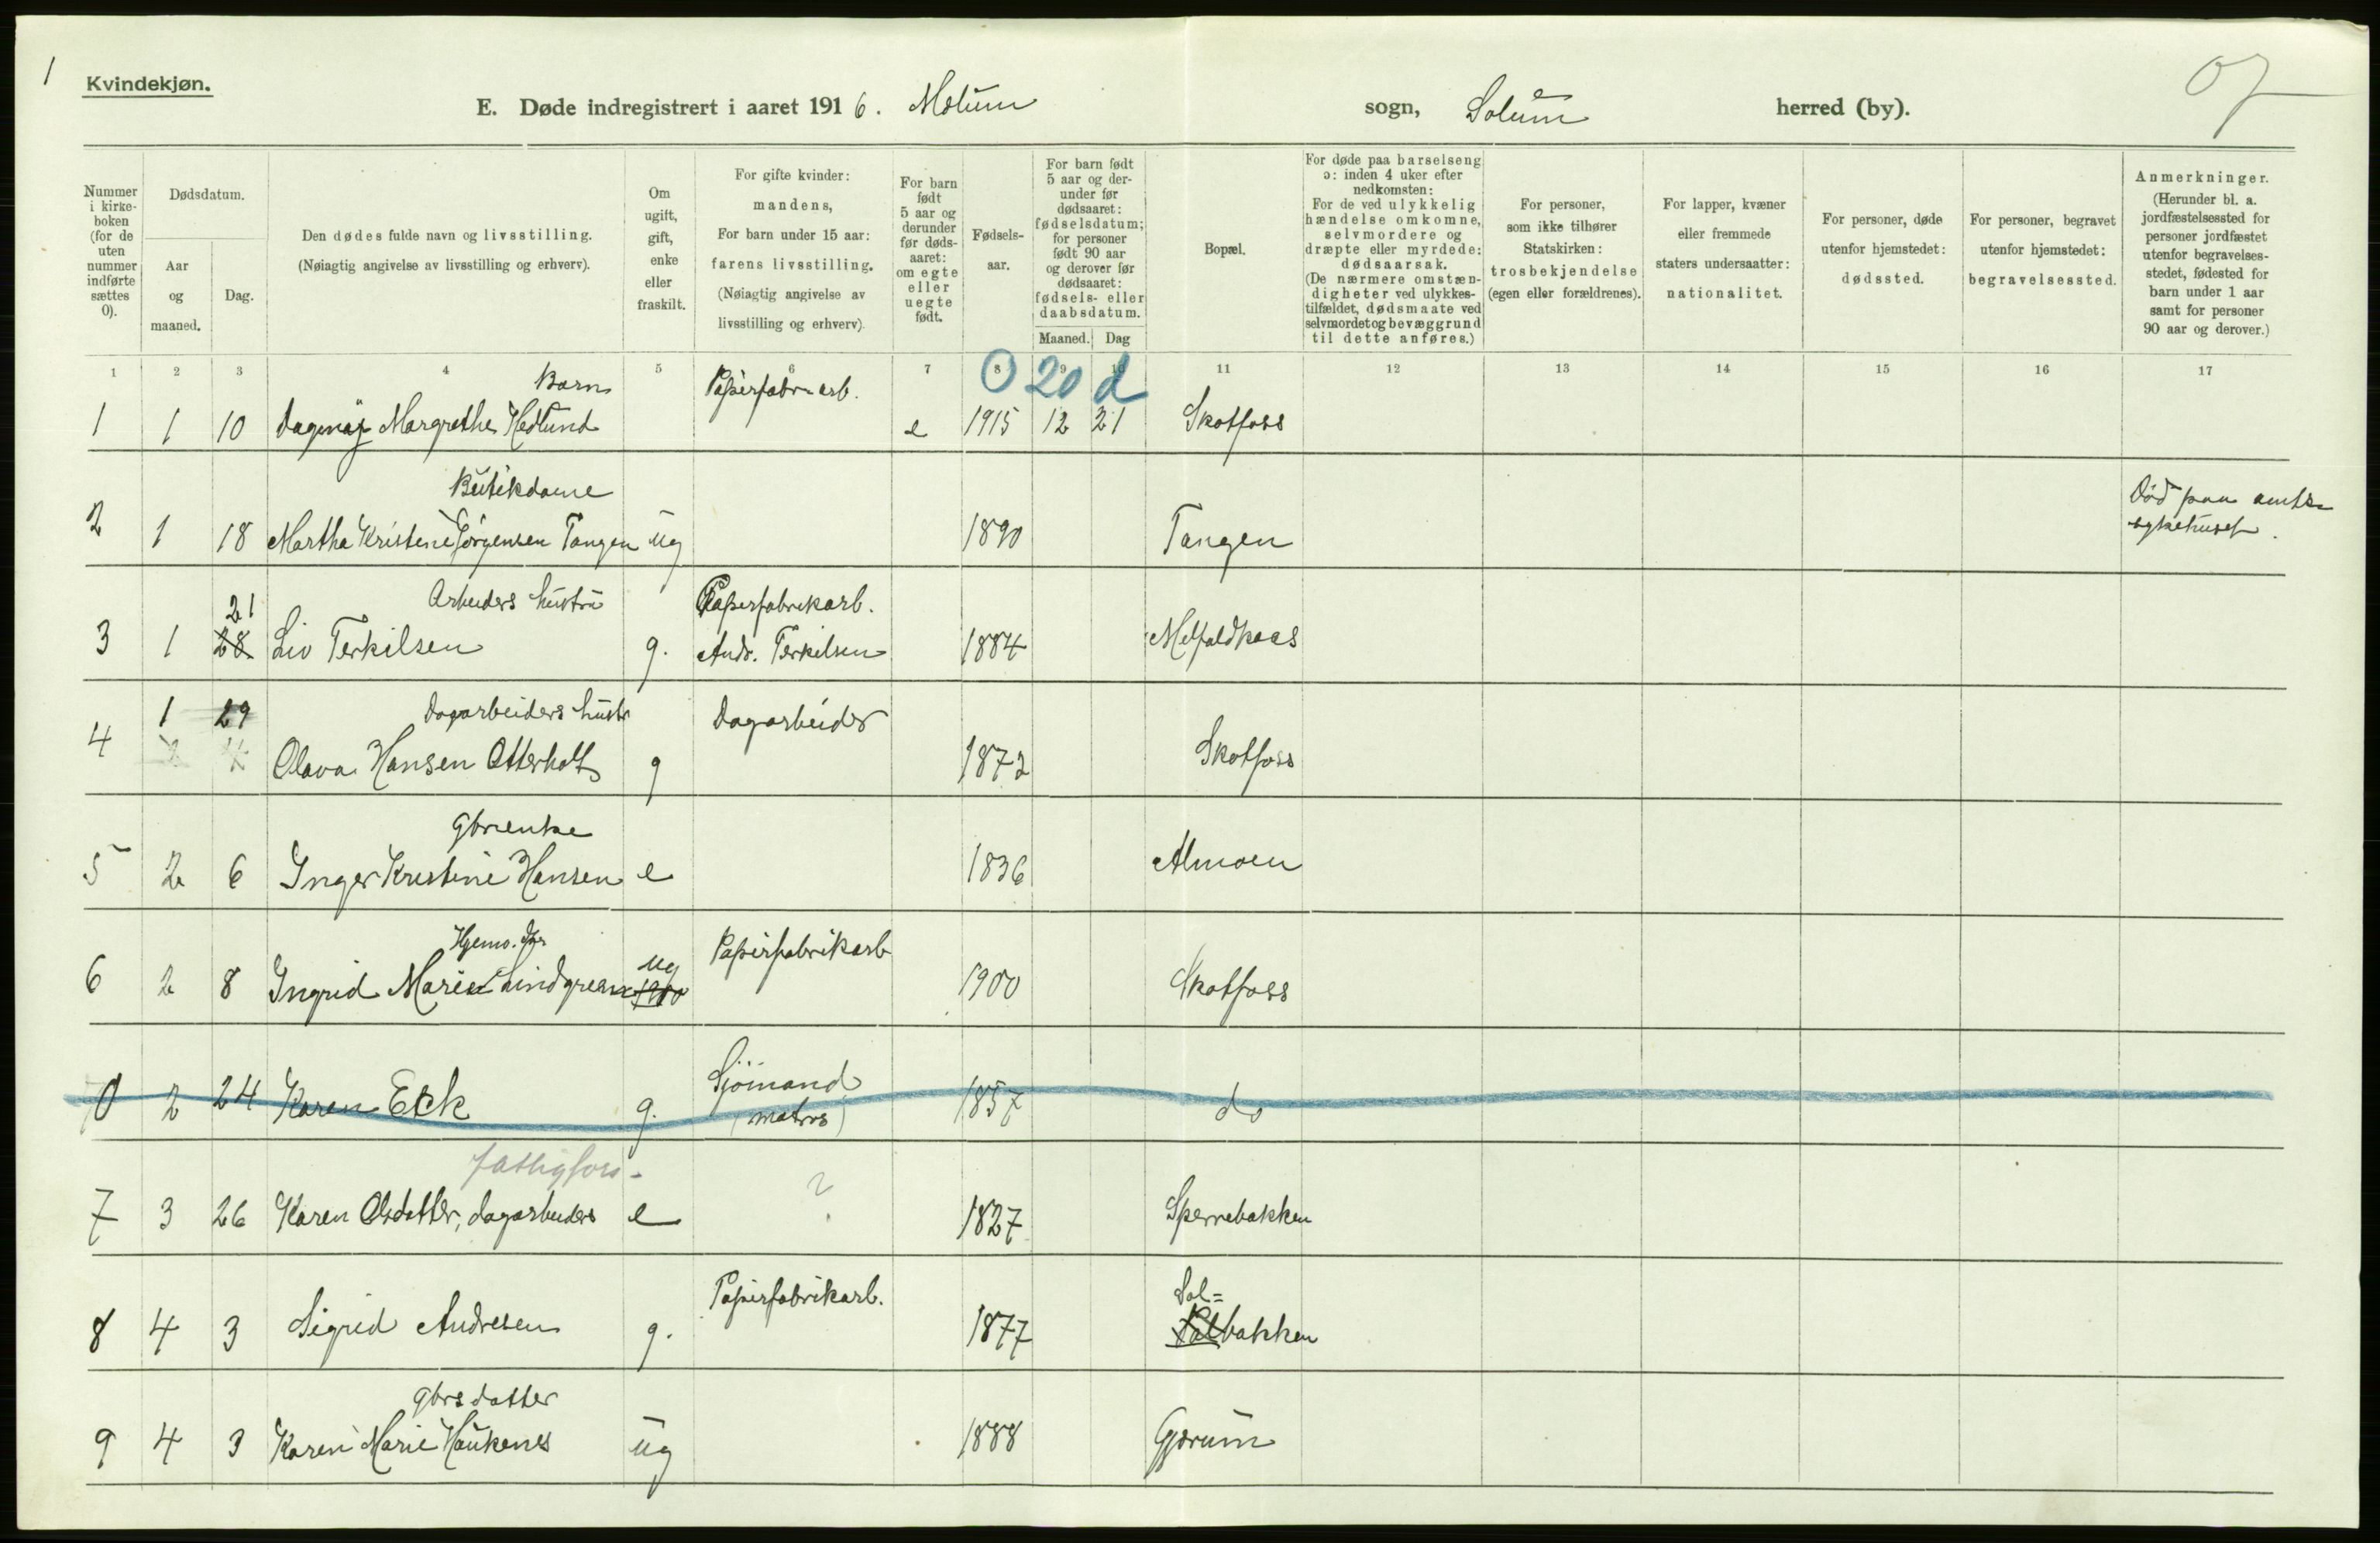 1
Kvindekjøn.
07
E. Døde indregistrert i aaret 1916. Melum sogn, Solum herred (by).
Nummer i kirke- boken (for de uten nummer indførte sættes 0).
Dødsdatum.
Aar og maaned.
Dag.
Den dødes fulde navn og livsstilling.
(Nøiagtig angivelse av livsstilling og erhverv).
Om ugift, gift, enke eller fraskilt.
For gifte kvinder: mandens,
For barn under 15 aar: farens livsstilling.
(Nøiagtig angivelse av livsstilling og erhverv).
For barn født 5 aar og derunder før døds- aaret: om egte eller uegte født.
Fødsels- aar.
For barn født 5 aar og der- under før dødsaaret: fødselsdatum; for personer født 90 aar og derover før dødsaaret: fødsels- eller daabsdatum.
Maaned. Dag
Bopæl.
For døde paa barselseng ɔ: inden 4 uker efter nedkomsten:
For de ved ulykkelig hændelse omkomne, selvmordere og dræpte eller myrdede: dødsaarsak.
(De nærmere omstæn- digheter ved ulykkes- tilfældet, dødsmaate ved selvmordet og bevæggrund til dette anføres.)
For personer, som ikke tilhører Statskirken: trosbekjendelse (egen eller forældrenes).
For lapper, kvæner eller fremmede staters undersaatter: nationalitet.
For personer, døde utenfor hjemstedet: dødssted.
For personer, begravet utenfor hjemstedet: begravelsessted.
Anmerkninger.
(Herunder bl. a. jordfæstelsessted for personer jordfæstet utenfor begravelses- stedet, fødested for barn under 1 aar samt for personer 90 aar og derover.)
1 2 3 4 5 6 7 8 9 10 11 12 13 14 15 16 17
0 20 d
Barn Papirfabr-arb.
1 1 10 Dagmar Margrethe Hedlund e 1915 12 21 Skotfoss
Butikdame Død paa amts-
2 1 18 Martha Kristine Jörgensen Tangen ug 1890 Tangen sykehuset.
21 Arbeiders hustru Papirfabrikarb.
3 1 28 Liv Terkilsen g. Andr. Terkilsen 1884 Melfaldkaas
1 29 Dagarbeiders hustr Dagarbeider
4 2 4 Olava Hansen Otterholt g 1872 Skotfoss
Gbrenke
5 2 6 Inger Kristine Hansen e 1836 Almoen
Hjemv. dtr ug Papirfabrikarb
6 2 8 Ingrid Marie Lindgren 1900 1900 Skotfoss
Sjömand
0 2 24 Karen Eek g. (matros) 1857 do
fattigfors-
7 3 26 Karen Olsdatter, dagarbeiders e ? 1827 Sperrebakken
Papirfabrikarb. Sol=
8 4 3 Sigrid Andresen g. 1877 bakken
gbrsdatter
9 4 3 Karen Marie Haukenes ug 1888 Gjerum